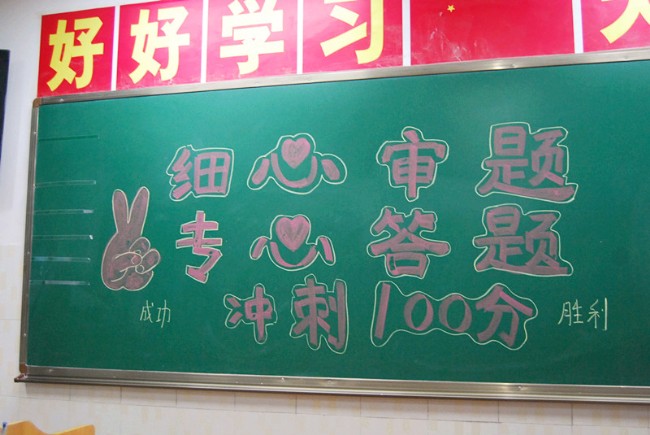 好好学习
细心审题
专心答题
冲刺100分
成功
胜利